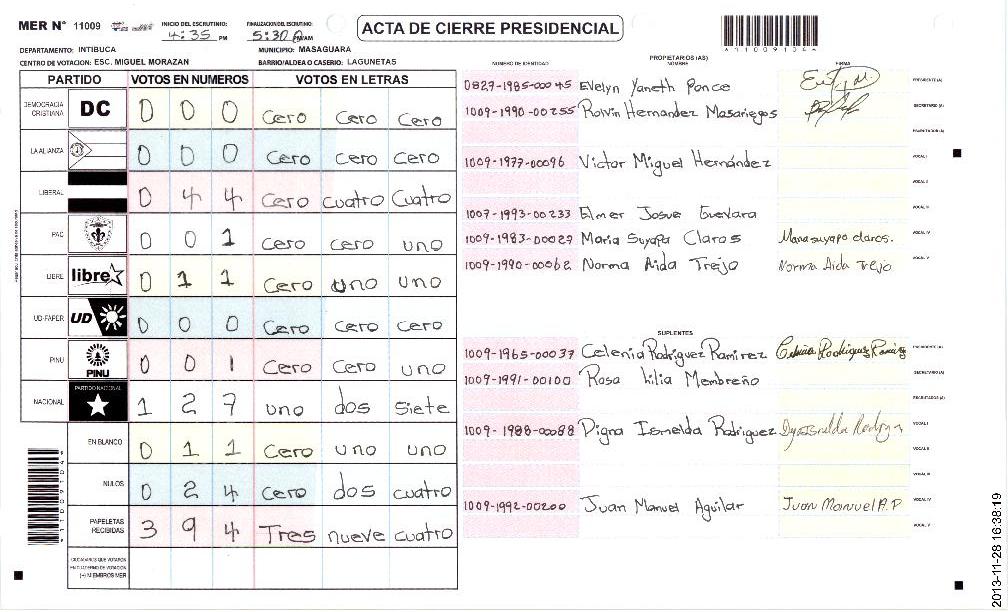 MER N° 11009 INICIO DEL ESCRUTINIO: 4:35 PM FINALIZACION DEL ESCRUTINIO: 5:30 PM/AM ACTA DE CIERRE PRESIDENCIAL
DEPARTAMENTO: INTIBUCA MUNICIPIO: MASAGUARA
CENTRO DE VOTACION: ESC. MIGUEL MORAZAN BARRIO/ALDEA O CASERIO: LAGUNETAS
PARTIDO VOTOS EN NUMEROS VOTOS EN LETRAS
DEMOCRACIA CRISTIANA DC 0 0 0 Cero Cero Cero
LA ALIANZA 0 0 0 Cero Cero Cero
LIBERAL 0 4 4 Cero Cuatro Cuatro
PAC 0 0 1 Cero Cero uno
LIBRE libre 0 1 1 Cero uno uno
UD-FAPER UD 0 0 0 Cero Cero Cero
PINU PINU 0 0 1 Cero Cero uno
NACIONAL PARTIDO NACIONAL 1 2 7 uno dos Siete
EN BLANCO 0 1 1 Cero uno uno
NULOS 0 2 4 Cero dos cuatro
PAPELETAS RECIBIDAS 3 9 4 Tres nueve cuatro
CIUDADANOS QUE VOTARON EN CUADERNO DE VOTACION (+) MIEMBROS MER
PROPIETARIOS (AS)
NUMERO DE IDENTIDAD NOMBRE FIRMA
0827-1985-00045 Evelyn Yaneth Ponce PRESIDENTE(A)
1009-1990-00255 Rolvin Hernandez Masariegos SECRETARIO (A)
ESCRUTADOR (A)
1009-1977-00096 Victor Miguel Hernández VOCAL I
VOCAL II
1007-1993-00233 Elmer Josue Guevara VOCAL III
1009-1983-00029 Maria Suyapa Claros Maria suyapa claros. VOCAL IV
1009-1990-00062 Norma Aida Trejo Norma Aida Trejo VOCAL V
SUPLENTES
1009-1965-00037 Celenia Rodriguez Ramirez Celenia Rodriguez Ramirez PRESIDENTE(A)
1009-1991-00100 Rosa Lilia Membreño SECRETARIO (A)
ESCRUTADOR (A)
1009-1988-00088 Digna Ismelda Rodriguez VOCAL I
VOCAL II
VOCAL III
1009-1992-00200 Juan Manuel Aguilar Juan Manuel A.P VOCAL IV
VOCAL V
2013-11-28 16:38:19